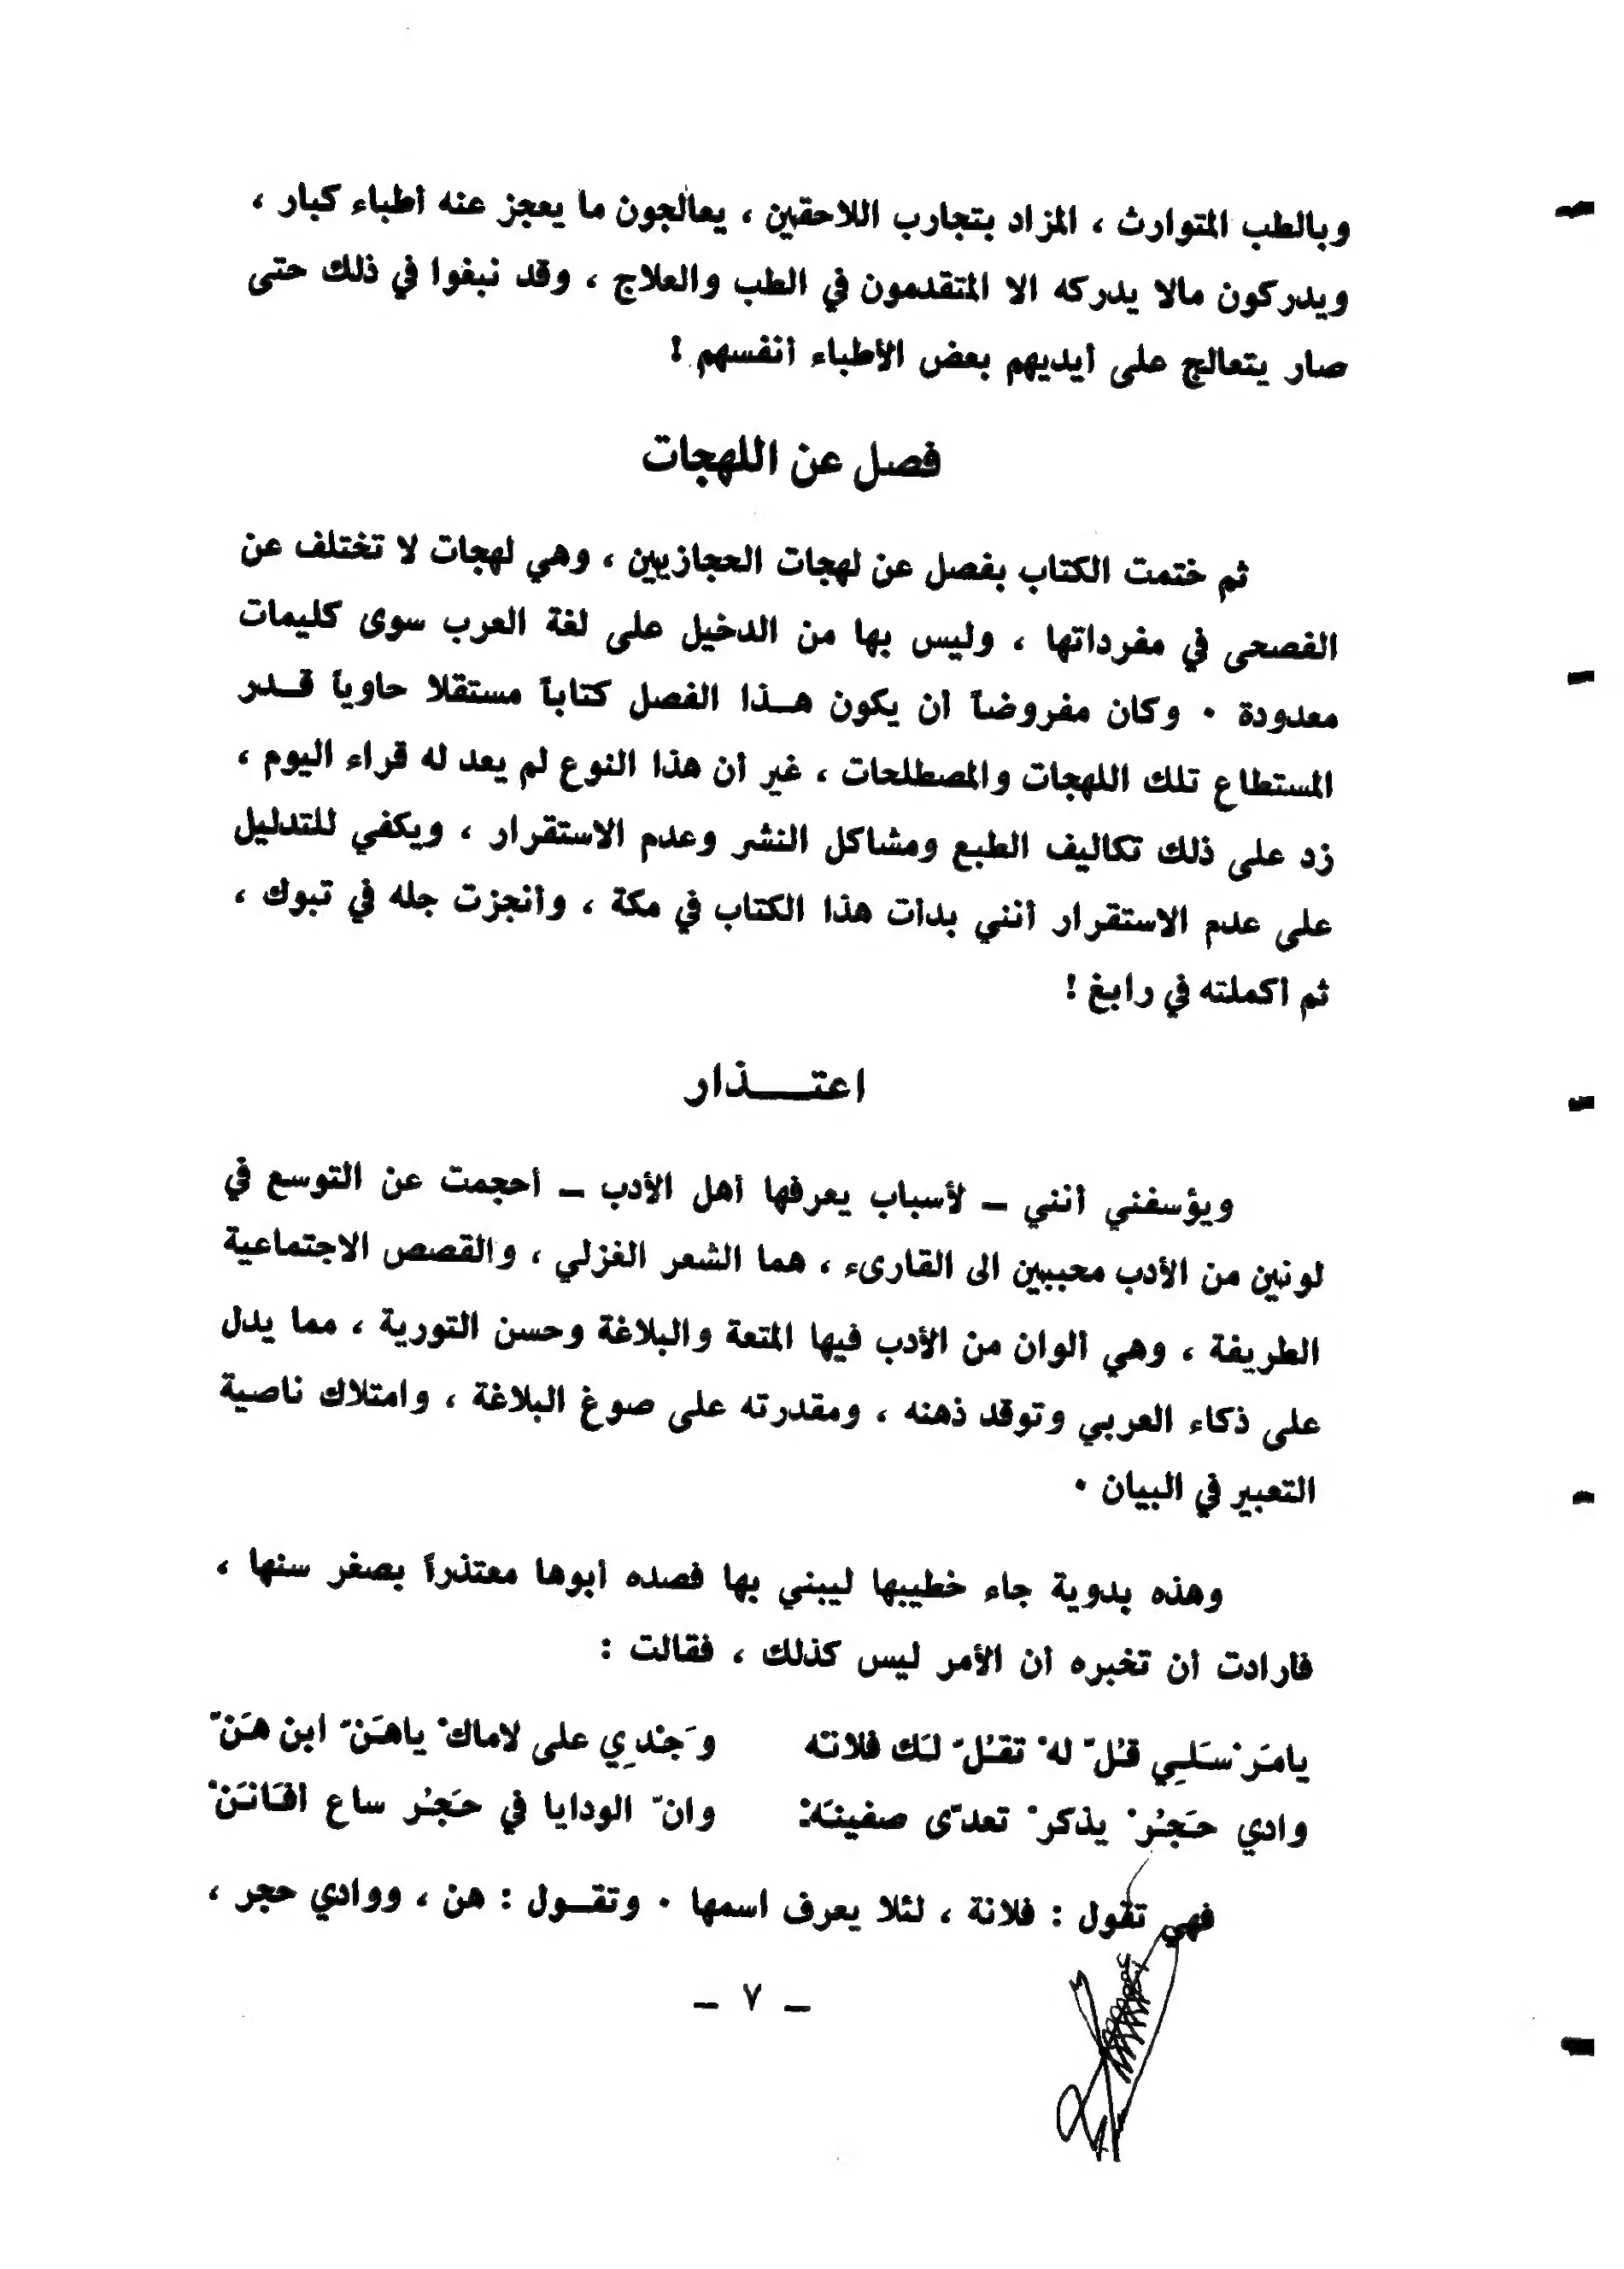 وبالطب المتوارث ، المزاد بتجارب اللاحقين ، يعالجون ما يعجز عنه أطباء كبار ،
ويدركون مالا يدركه الا المتقدمون في الطب والعلاج ، وقد نبغوا في ذلك حتى
صار يتعالج على أيديهم بعض الأطباء أنفسهم !
فصل عن اللهجات
ثم ختمت الكتاب بفصل عن لهجات الحجازيين ، وهي لهجات لا تختلف عن
الفصحى في مفرداتها ، وليس بها من الدخيل على لغة العرب سوى كليمات
معدودة ٠ وكان مفروضاً أن يكون هــذا الفصل كتاباً مستقلا حاوياً قــدر
المستطاع تلك اللهجات والمصطلحات ، غير أن هذا النوع لم يعد له قراء اليوم ،
زد على ذلك تكاليف الطبع ومشاكل النشر وعدم الاستقرار ، ويكفي للتدليل
على عدم الاستقرار أنني بدأت هذا الكتاب في مكة ، وأنجزت جله في تبوك ،
ثم أكملته في رابغ !
اعتــــذار
ويؤسفني أنني ــ لأسباب يعرفها أهل الأدب ــ أحجمت عن التوسع في
لونين من الأدب محببين الى القارىء ، هما الشعر الغزلي ، والقصص الاجتماعية
الطريفة ، وهي ألوان من الأدب فيها المتعة والبلاغة وحسن التورية ، مما يدل
على ذكاء العربي وتوقد ذهنه ، ومقدرته على صوغ البلاغة ، وامتلاك ناصية
التعبير في البيان ٠
وهذه بدوية جاء خطيبها ليبني بها فصده أبوها معتذراً بصغر سنها ،
فأرادت أن تخبره أن الأمر ليس كذلك ، فقالت :
يامَرْسَلِي قُلّ لهْ تقُلّ لَك فلانه وَجْدِي على لاماكْ ياهَنّ ابن هَنّ
وادي حَجُرْ يذكرْ تعدّى صفينَة وانّ الودايا في حَجُر ساع أفَانَنْ
فهي تقول : فلانة ، لئلا يعرف اسمها ٠ وتقــول : هن ، ووادي حجر ،
ــ ٧ ــ